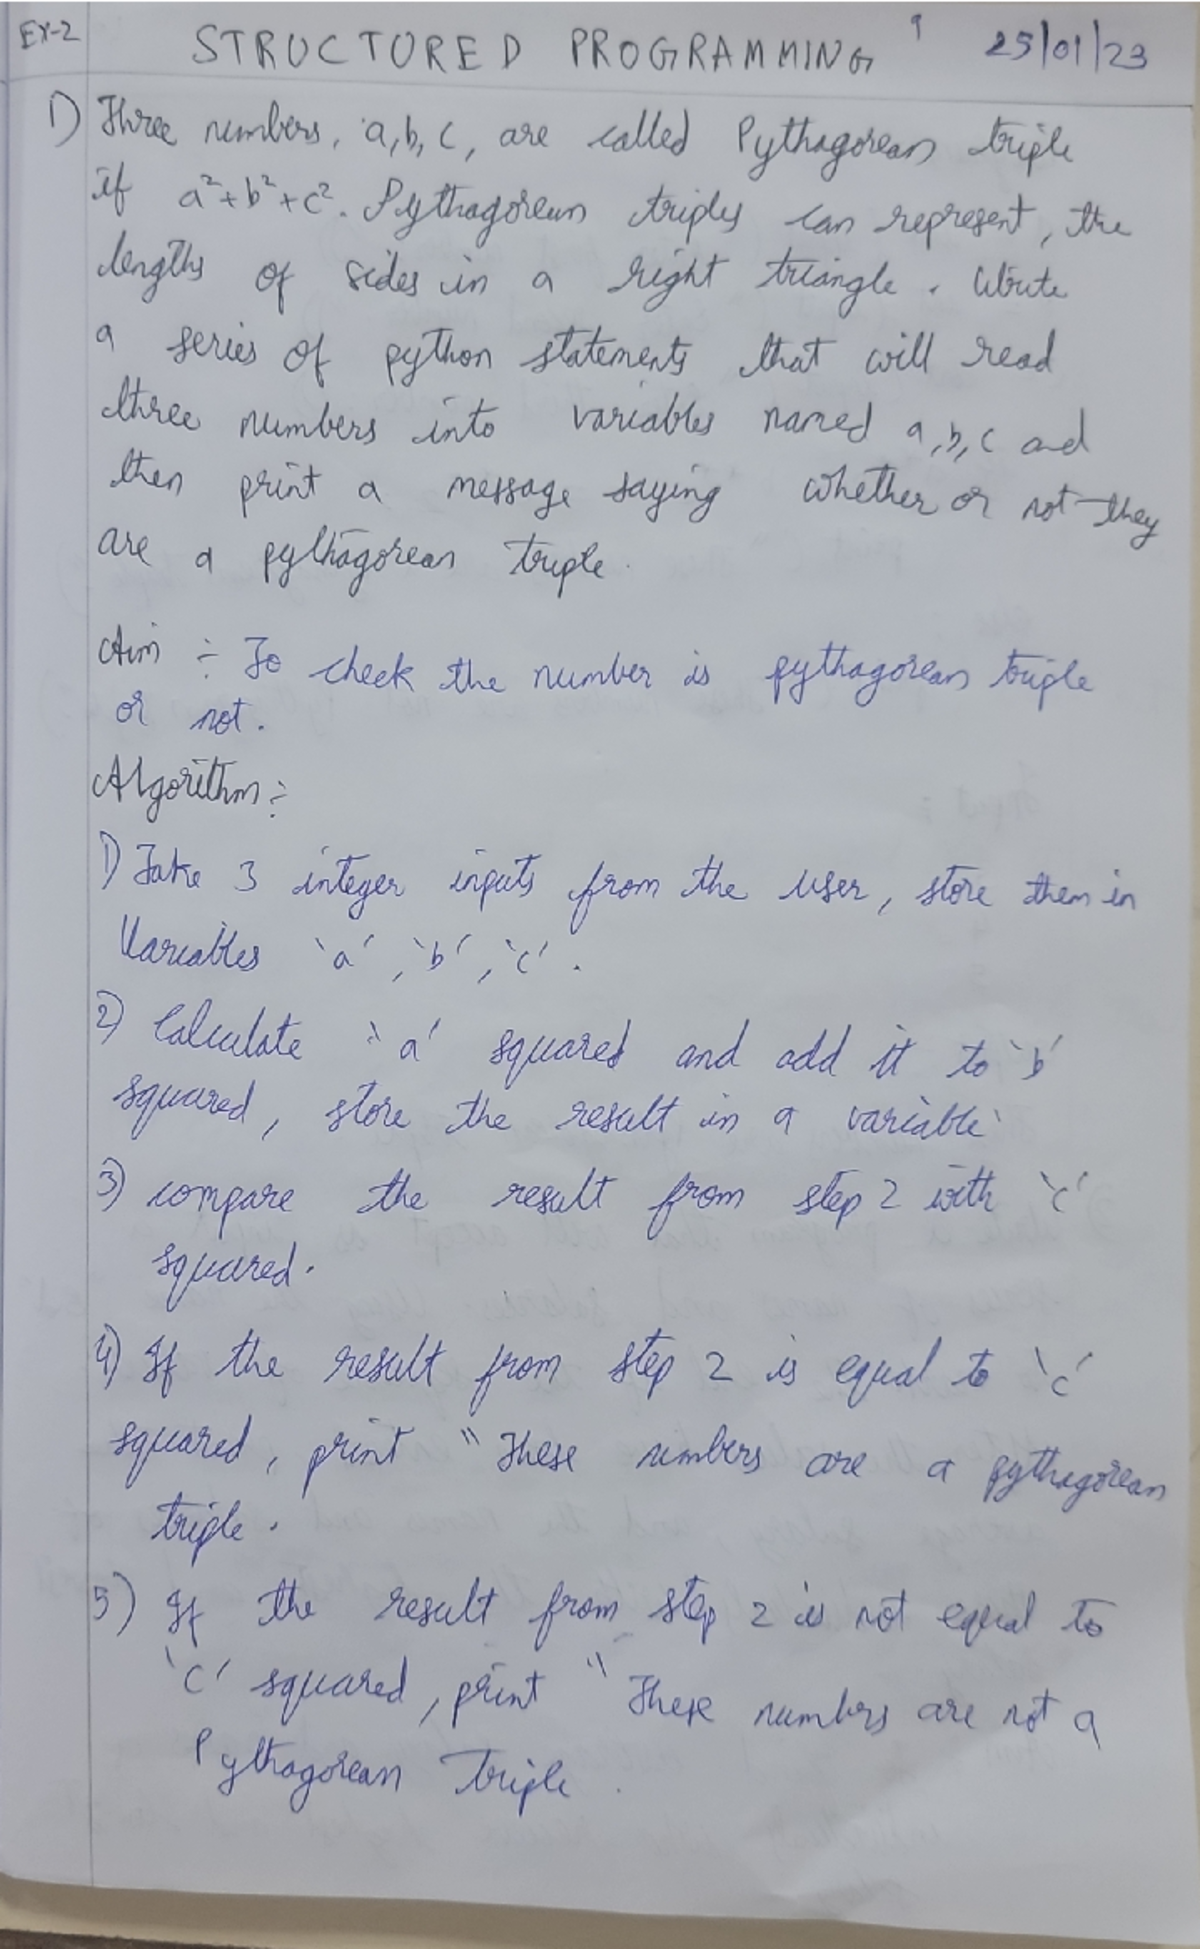 EX-2 STRUCTURED PROGRAMMING 9 25/01/23
1) Three numbers, a,b,c, are called Pythagorean triple
if a²+b²+c². Pythagorean triples can represent, the
lengths of sides in a right triangle. Write
a series of python statements that will read
three numbers into variables named a,b,c and
then print a message saying whether or not they
are a pythagorean triple.
Aim ÷ To check the number is pythagorean triple
or not.
Algorithm ÷
1) Take 3 integer inputs from the user, store them in
Variables 'a', 'b', 'c'.
2) Calculate 'a' squared and add it to 'b'
squared, store the result in a variable
3) compare the result from step 2 with 'c'
squared.
4) If the result from step 2 is equal to 'c'
squared, print "These numbers are a pythagorean
triple.
5) If the result from step 2 is not equal to
'c' squared, print "These numbers are not a
Pythagorean Triple.